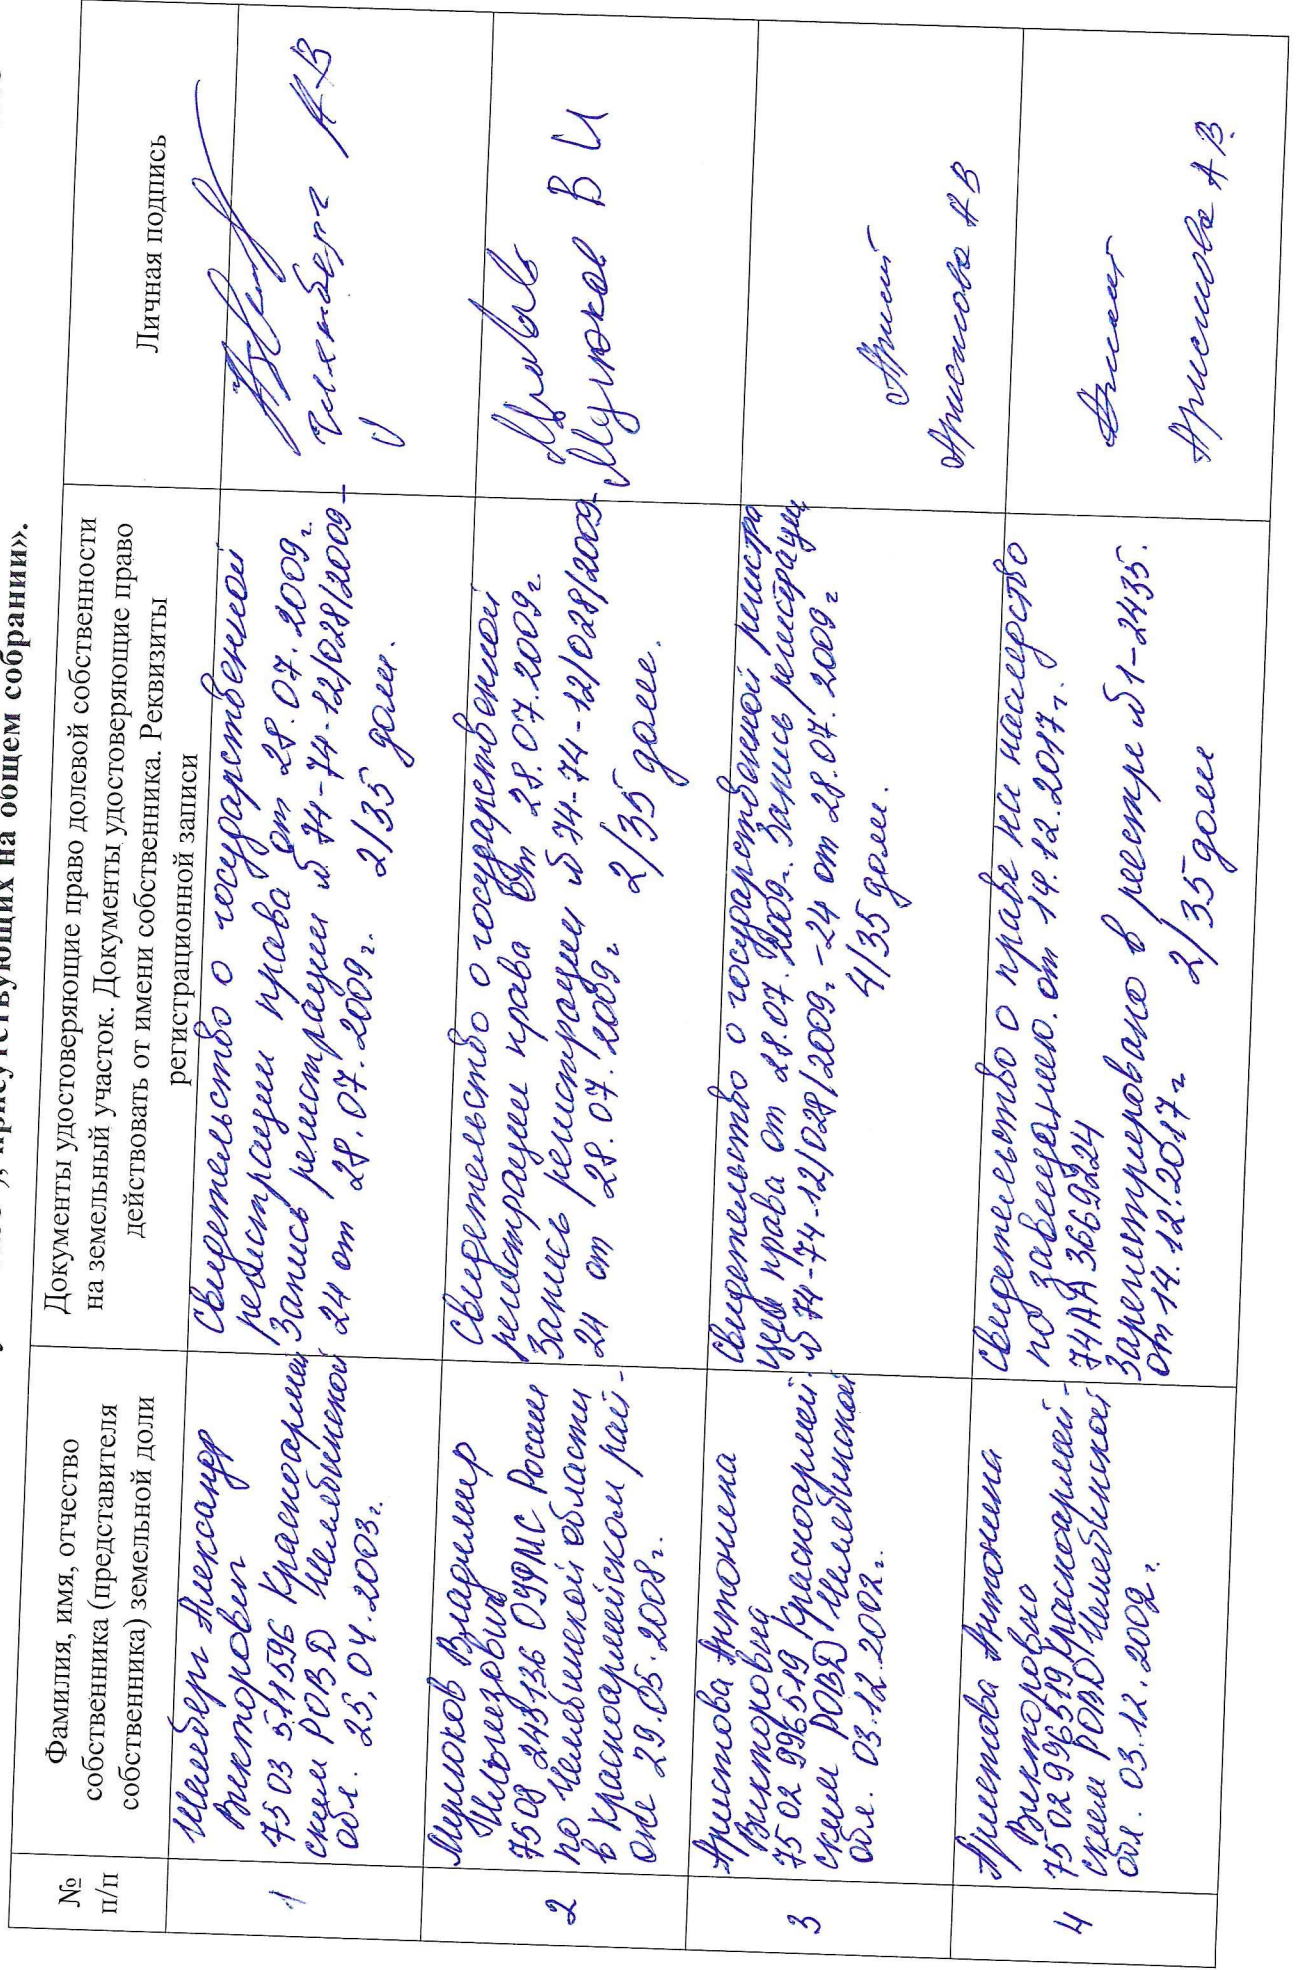 присутствующих на общем собрании».
№
п/п
Фамилия, имя, отчество
собственника (представителя
собственника) земельной доли
Документы удостоверяющие право долевой собственности
на земельный участок. Документы удостоверяющие право
действовать от имени собственника. Реквизиты
регистрационной записи
Личная подпись
1
Александр
Викторович
7503 511596 Красноармей
ским РОВД Челябинской
обл. 25.04.2003г.
Свидетельство о государственной
регистрации права от 28.07.2009г.
Запись регистрации № 74-74-12/028/2009-
24 от 28.07.2009г. 2/35 доли.
А В
2
Владимир
7508 245136 ОУФМС России
по Челябинской области
в Красноармейском рай-
оне 29.05.2008г.
Свидетельство о государственной
регистрации права от 28.07.2009г.
Запись регистрации № 74-74-12/028/2009-
24 от 28.07.2009г 2/35 доли.
В И
3
Аристова Антонина
Викторовна
7502 996519 Красноармей-
ским РОВД Челябинской
обл. 03.12.2002г.
Свидетельство о государственной регистра
ции права от 28.07.2009г. Запись регистрации
№ 74-74-12/028/2009г-24 от 28.07.2009г
4/35 доли.
А В
4
Аристова Антонина
Викторовна
7502 996519 Красноармей-
ским РОВД Челябинской
обл. 03.12.2002г.
Свидетельство о праве на наследство
по завещанию. от 14.12.2017г.
74АА 3669224
Зарегистрировано в реестре №1-2435.
от 14.12.2017г 2/35 доли
А В.